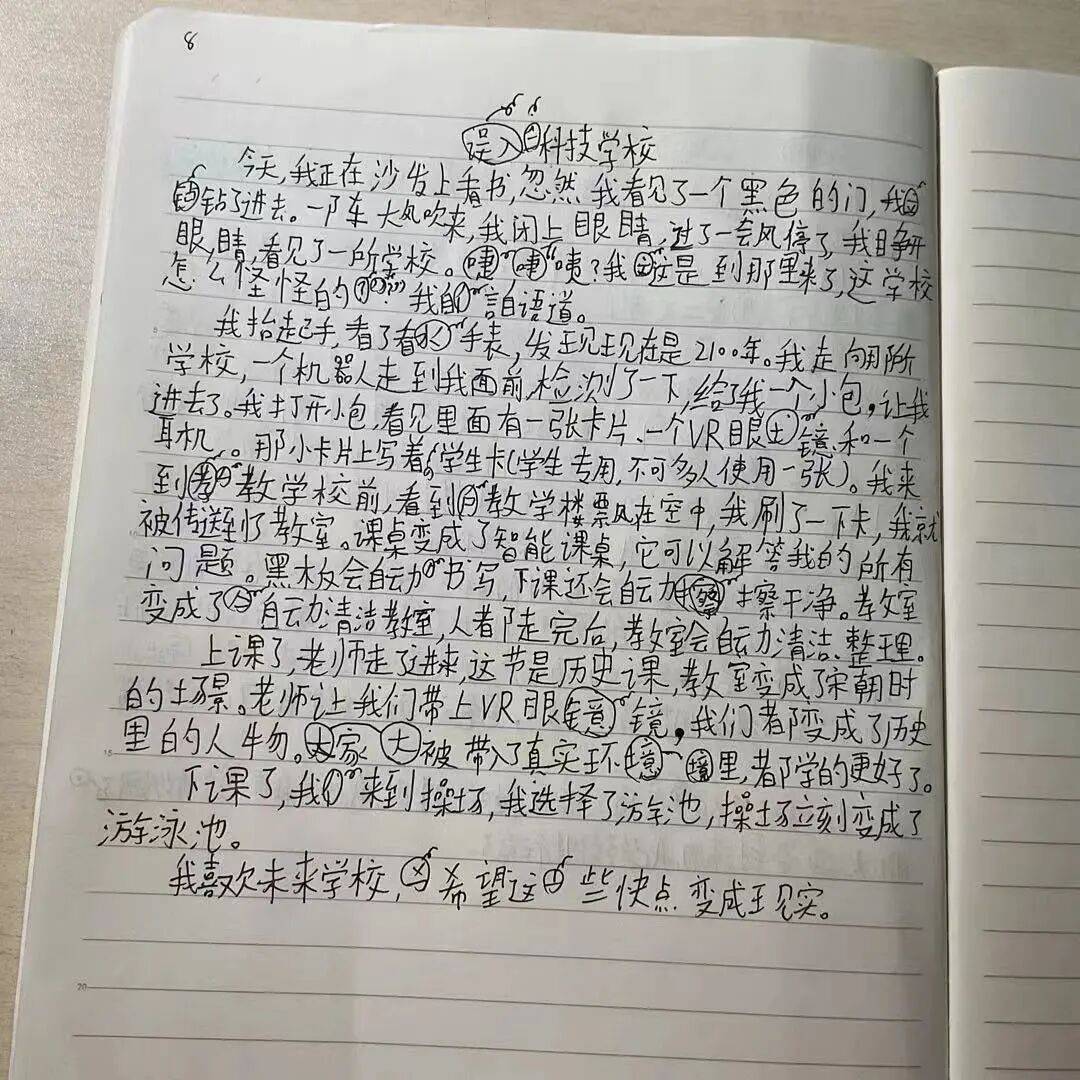 8
误入科技学校
今天,我正在沙发上看书,忽然我看见了一个黑色的门,我
钻了进去。一阵大风吹来,我闭上眼睛,过了一会风停了,我睁开
眼,睛,看见了一所学校。咦?我这是到那里来了,这学校
怎么怪怪的 我自言自语道。
我抬起手,看了看手表,发现现在是2100年。我走向那所
学校,一个机器人走到我面前,检测了一下,给了我一个小包,让我
进去了。我打开小包,看见里面有一张卡片、一个VR眼镜和一个
耳机。那小卡片上写着:学生卡(学生专用,不可多人使用一张)。我来
到教学校前,看到教学楼飘在空中,我刷了一下卡,我就
被传送到了教室。课桌变成了智能课桌,它可以解答我的所有
问题。黑板会自动书写,下课还会自动擦干净。教室
变成了自动清洁教室,人都走完后,教室会自动清洁、整理。
上课了,老师走了进来,这节是历史课,教室变成了宋朝时
的场景。老师让我们带上VR眼镜,我们都变成了历史
里的人物。大家被带入了真实环境里,都学的更好了。
下课了,我来到操场,我选择了游泳池,操场立刻变成了
游泳池。
我喜欢未来学校,希望这些快点变成现实。
5
15
20